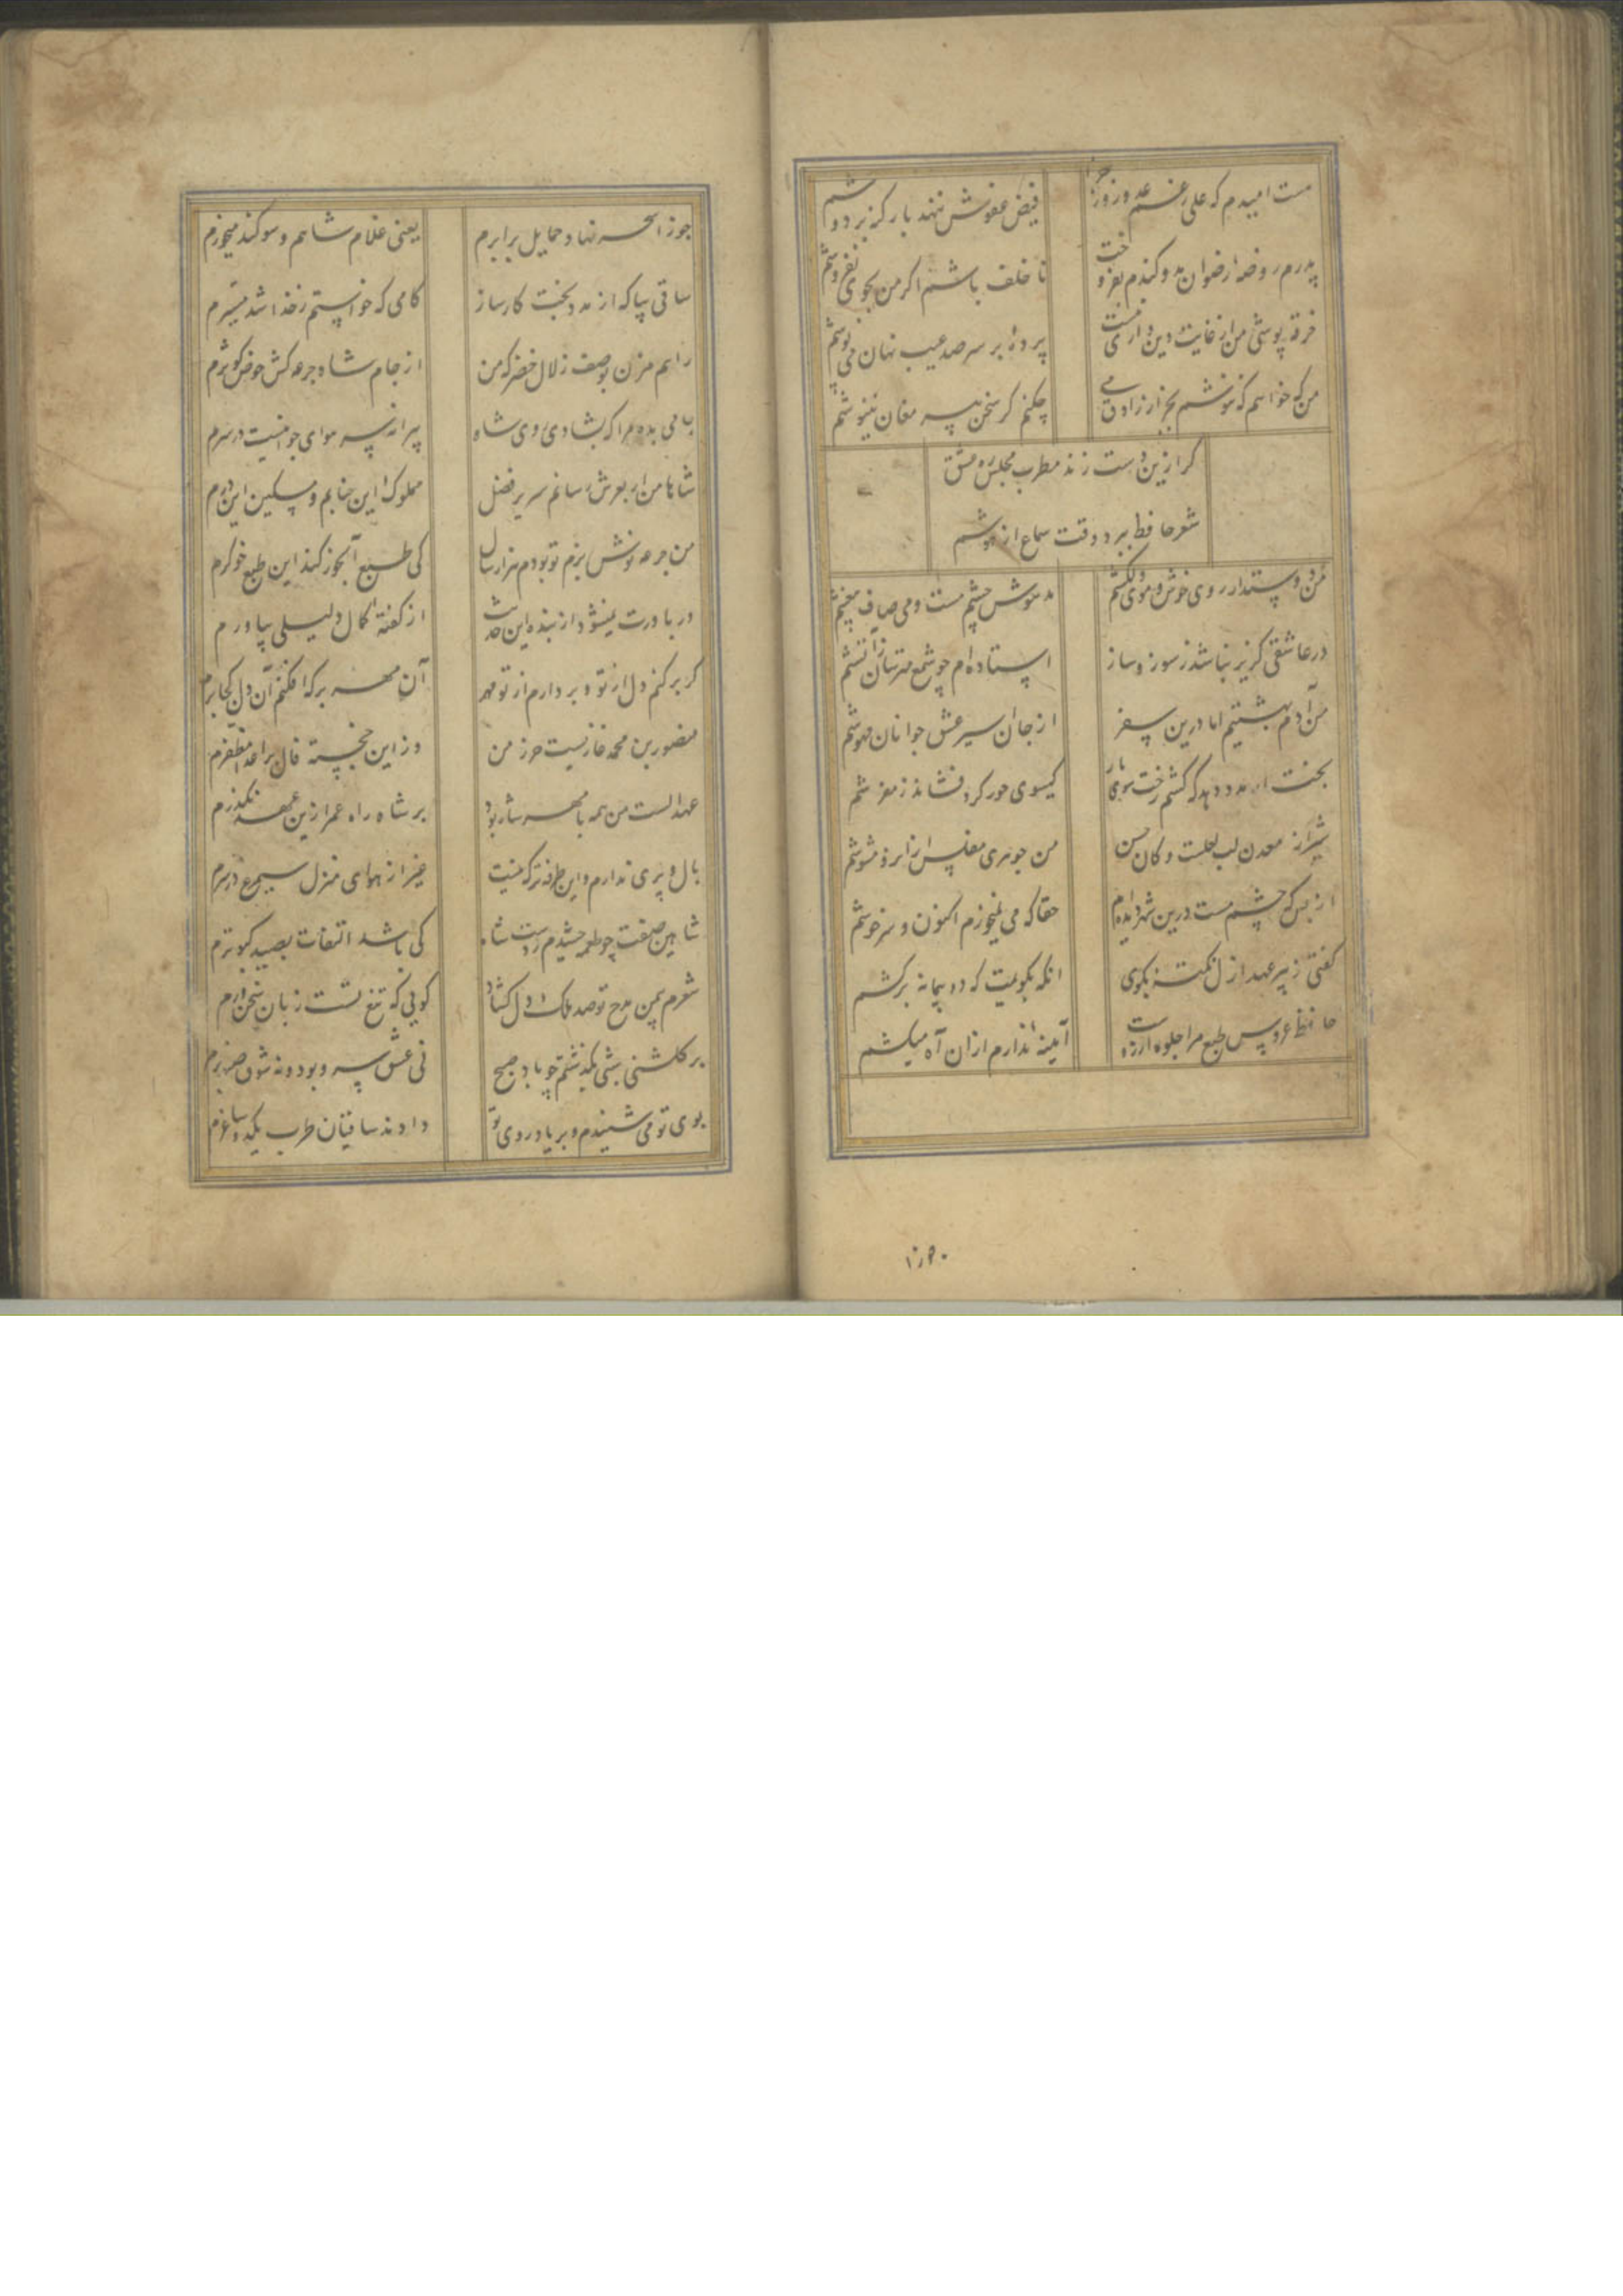 هست امیدم که علی رغم عدو روز جزا
فیض عفوش ننهد بار گنه بر دوشم
پدرم روضهٔ رضوان بدو گندم بفروخت
ناخلف باشم اگر من بجوی نفروشم
خرقه پوشی من از غایت دین داری نیست
پردهٔ بر سر صد عیب نهان می پوشم
من که خواهم که ننوشم بجز از راوق می
چکنم گر سخن پیر مغان ننیوشم
گر ازین دست زند مطرب مجلس ره عشق
شعر حافظ ببرد وقت سماع از هوشم
من دوستدار روی خوش و موی دلکشم
مدهوش چشم مست و می صاف بیغشم
در عاشقی گزیر نباشد ز سوز و ساز
استاده ام چو شمع مترسان ز آتشم
من آدم بهشتیم اما درین سفر
از جان سیر عشق جوانان مهوشم
بخت ار مدد دهد که کشم رخت سوی یار
گیسوی حور گرد فشاند ز مفرشم
شیراز معدن لب لعلست و کان حسن
من جوهری مفلس از آنرو مشوشم
از بس که چشم مست درین شهر دیده ام
حقا که می نمیخورم اکنون و سرخوشم
گفتی ز پیر عهد ازل نکته بگوی
انگه بگویمت که دو پیمانه برکشم
حافظ عروس طبع مرا جلوه آرزوست
آیینه ندارم از آن آه میکشم
جوزا سحر نهاد حمایل برابرم
یعنی غلام شاهم و سوگند میخورم
ساقی بیا که از مدد بخت کارساز
کامی که خواستم ز خدا شد میسرم
راهم مزن بوصف زلال خضر که من
از جام شاه جرعه کش حوض کوثرم
جامی بده مرا که بشادی روی شاه
پیرانه سر هوای جوانیست در سرم
شاها من ار بعرش رسانم سریر فضل
مملوک این جنابم و مسکین این درم
من جرعه نوش بزم تو بودم هزار سال
کی طبع آبخور کند این طبع خوگرم
ور باورت نمیشود از بنده این حدیث
از گفتهٔ کمال دلیلی بیاورم
گر برکنم دل از تو و بردارم از تو مهر
آن مهر بر که افکنم آن دل کجا برم
منصور بن محمد غازیست حرز من
وز این خجسته فال بر اعدا مظفرم
عهد الست من همه با مهر شاه بود
بر شاه راه عمر ازین عهد نگذرم
بال و پری ندارم و این طرفه تر که نیست
غیر از هوای منزل سیمرغ در سرم
شاهین صفت چو طعمه چشیدم ز دست شاه
کی باشد التفات بصید کبوترم
شعرم بیمن مدح تو صد ملک دل گشاد
گویی که تیغ تست زبان سخن ورم
بر گلشنی بشی بگذشتم چو باد صبح
نی عشق سرو بود و نه شوق صنوبرم
بوی تو می شنیدم و بر یاد روی تو
دادند ساقیان طرب یکدو ساغرم